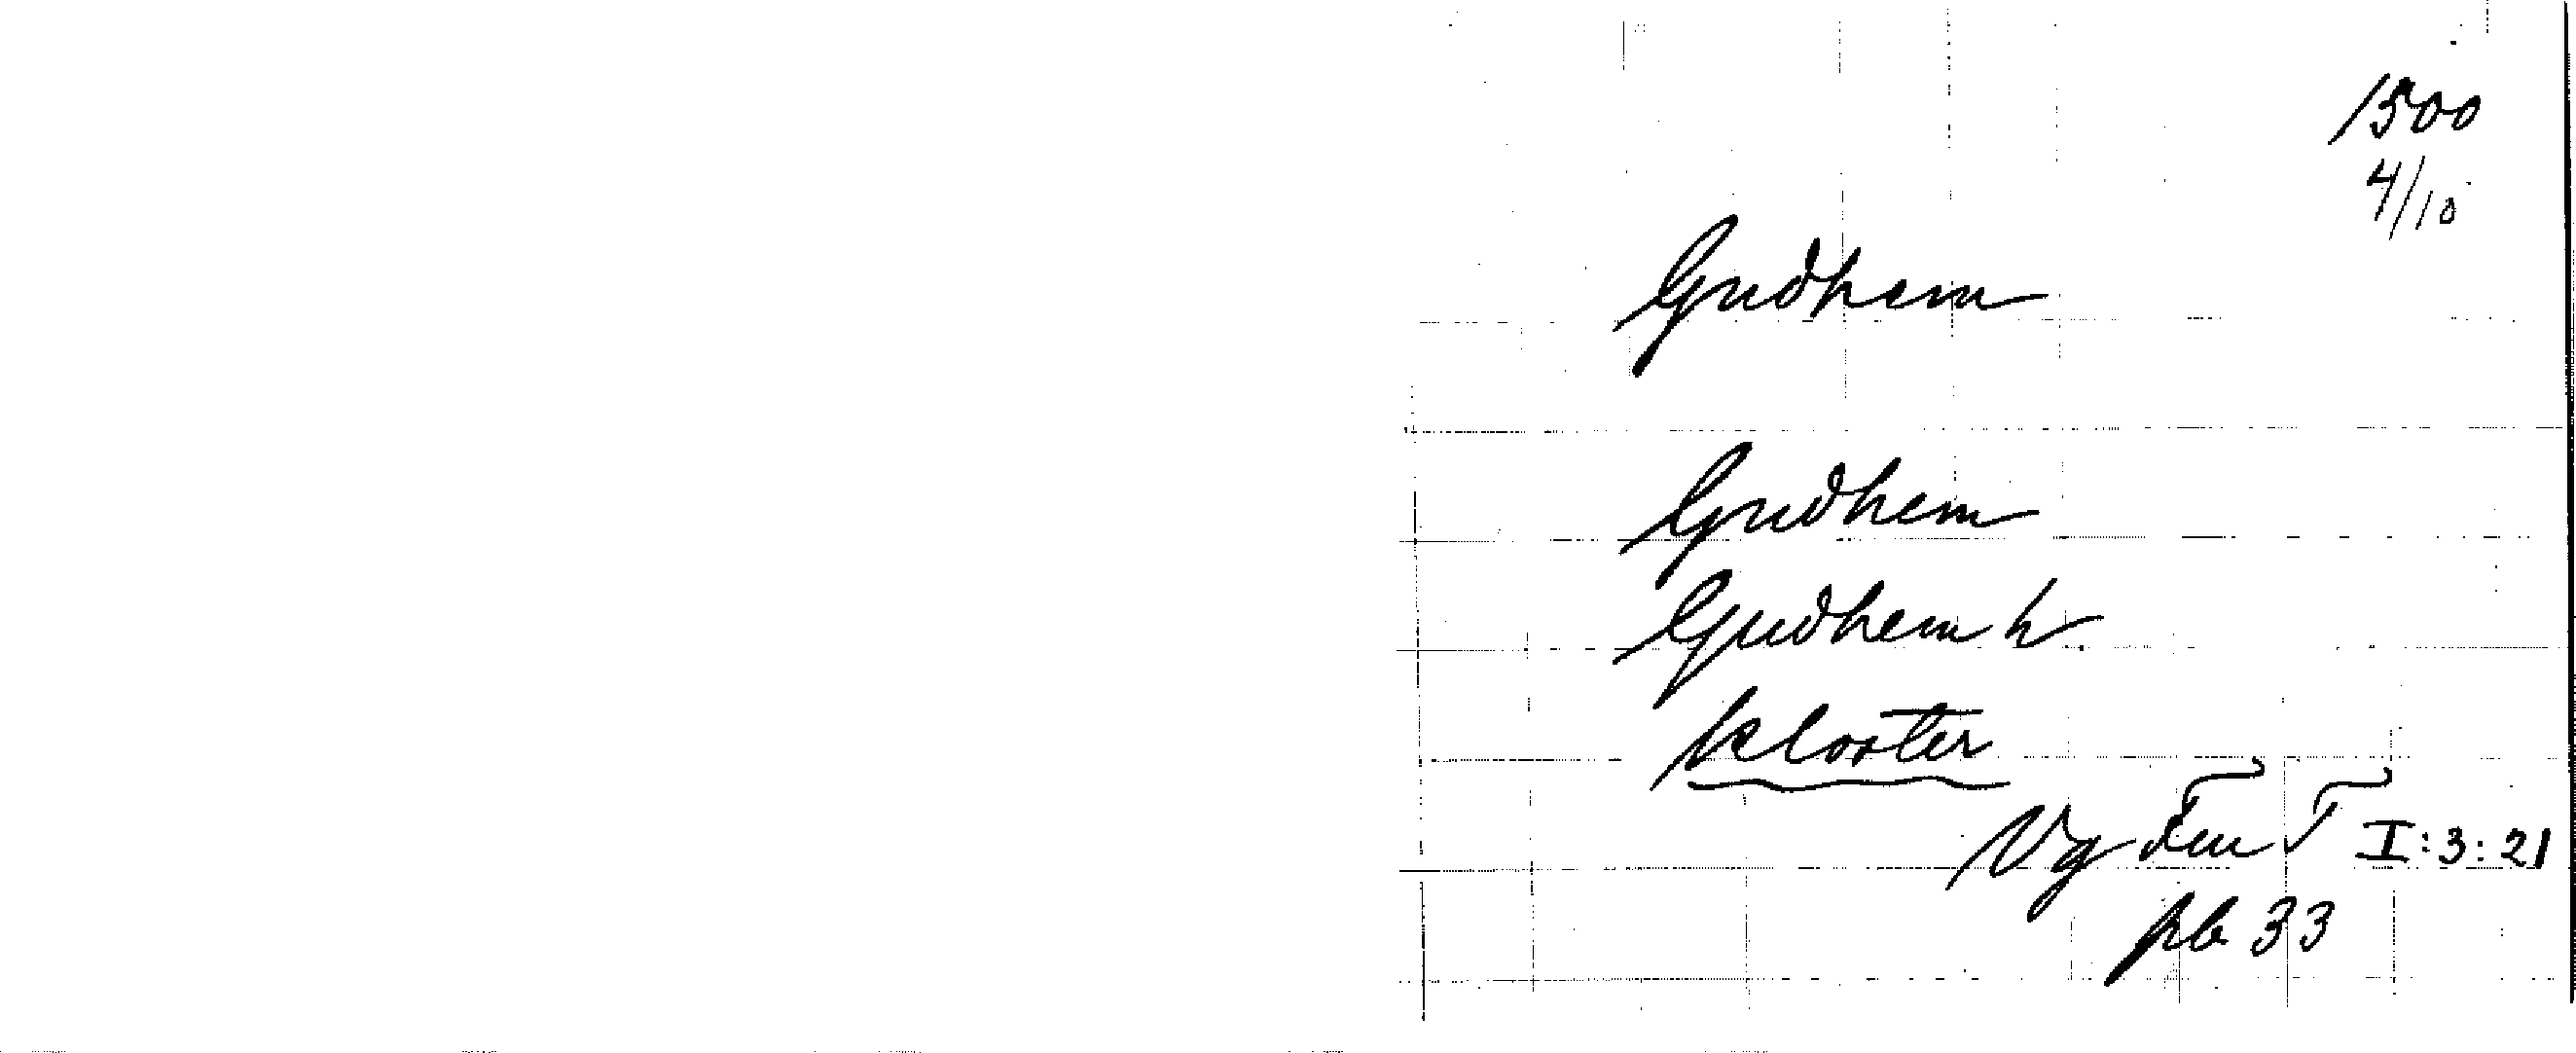 1500
4/10
Gudhem
Gudhem
Gudhem h.
kloster
Vg Fm T I:3:21
pb 33